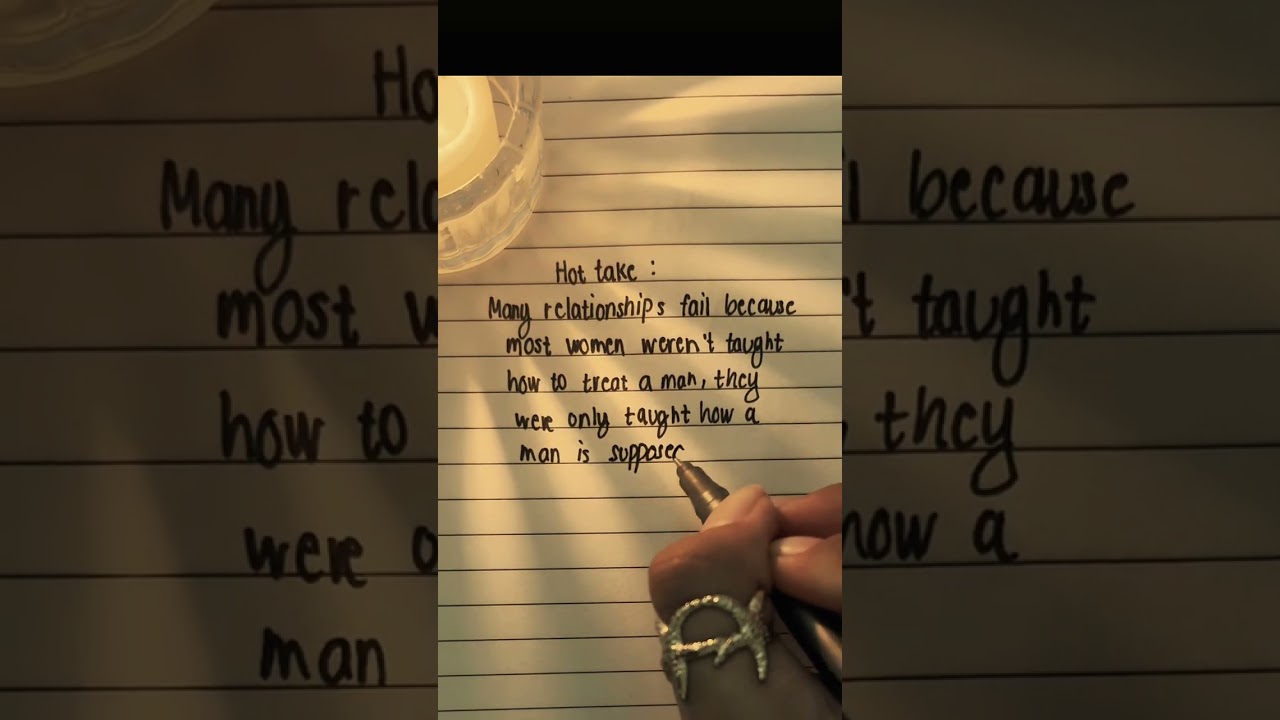 Hot take :
Many relationships fail because
most women weren't taught
how to treat a man, they
were only taught how a
man is suppose